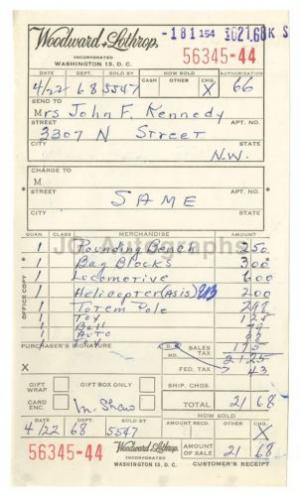 -181 154 $021.68 K S
Woodward & Lothrop,
INCORPORATED
WASHINGTON 13, D.C.
56345-44
DATE DEPT. SOLD BY HOW SOLD AUTHORIZATION
CASH OTHER CHG.
4/22 68 5547 X 66
SEND TO
Mrs John F. Kennedy
STREET APT. NO.
3307 N Street
CITY STATE
N.W.
CHARGE TO
M
STREET APT. NO.
SAME
CITY STATE
QUAN. CLASS MERCHANDISE AMOUNT
1 Pounding Bench 250
1 Bag Blocks 300
1 Locomotive 600
1 Helicopter (As is) 200
1 Totem Pole
1 Toy
1 Ball
1 Auto
1
JG Autographs
OFFICE COPY
PURCHASER'S SIGNATURE D.C. SALES TAX
MD. 2125
X FED. TAX 43
GIFT WRAP GIFT BOX ONLY SHIP. CHGS.
CARD ENC. TOTAL 21 68
HOW SOLD
DATE DEPT. SOLD BY AMOUNT RECD. OTHER CHG.
4/22 68 5547 X
56345-44
Woodward & Lothrop,
INCORPORATED
WASHINGTON 13, D.C.
AMOUNT OF SALE 21 68
CUSTOMER'S RECEIPT